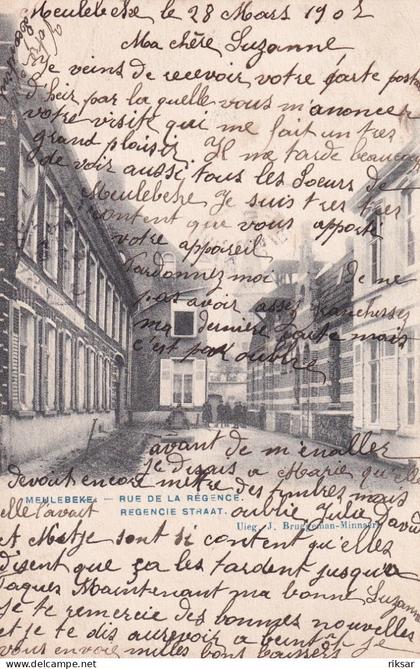 Meulebeke le 28 Mars 1902
Ma chère Suzanne
Je viens de recevoir votre Carte postale
d'hier par la quelle vous m'anoncer
votre visite qui me fait un tres
grand plaisir Il me tarde beaucoup
de voir aussi tous les Soeurs de
Meulebeke Je suis tres tres
content que vous apporté
votre appareil
Pardonnez moi de ne
pas avoir assez
ma dernière Carte mais
c'est pour
avant de m'en aller
Je disais a Marie qu'elle
devait encore mettre des timbres mais
MEULEBEKE. — RUE DE LA RÉGENCE.
REGENCIE STRAAT.
Uieg. J. Bruggeman-Minnaert
elle l'avait oublié Julia
et sont si content qu'elles
disent que ça les tardent jusqu'a
Paques Maintenant ma bonne Suzanne
je te remercie des bonnes nouvelles
et je te dis aurevoir a bientôt Je
vous envoie milles bons baisers
riksar